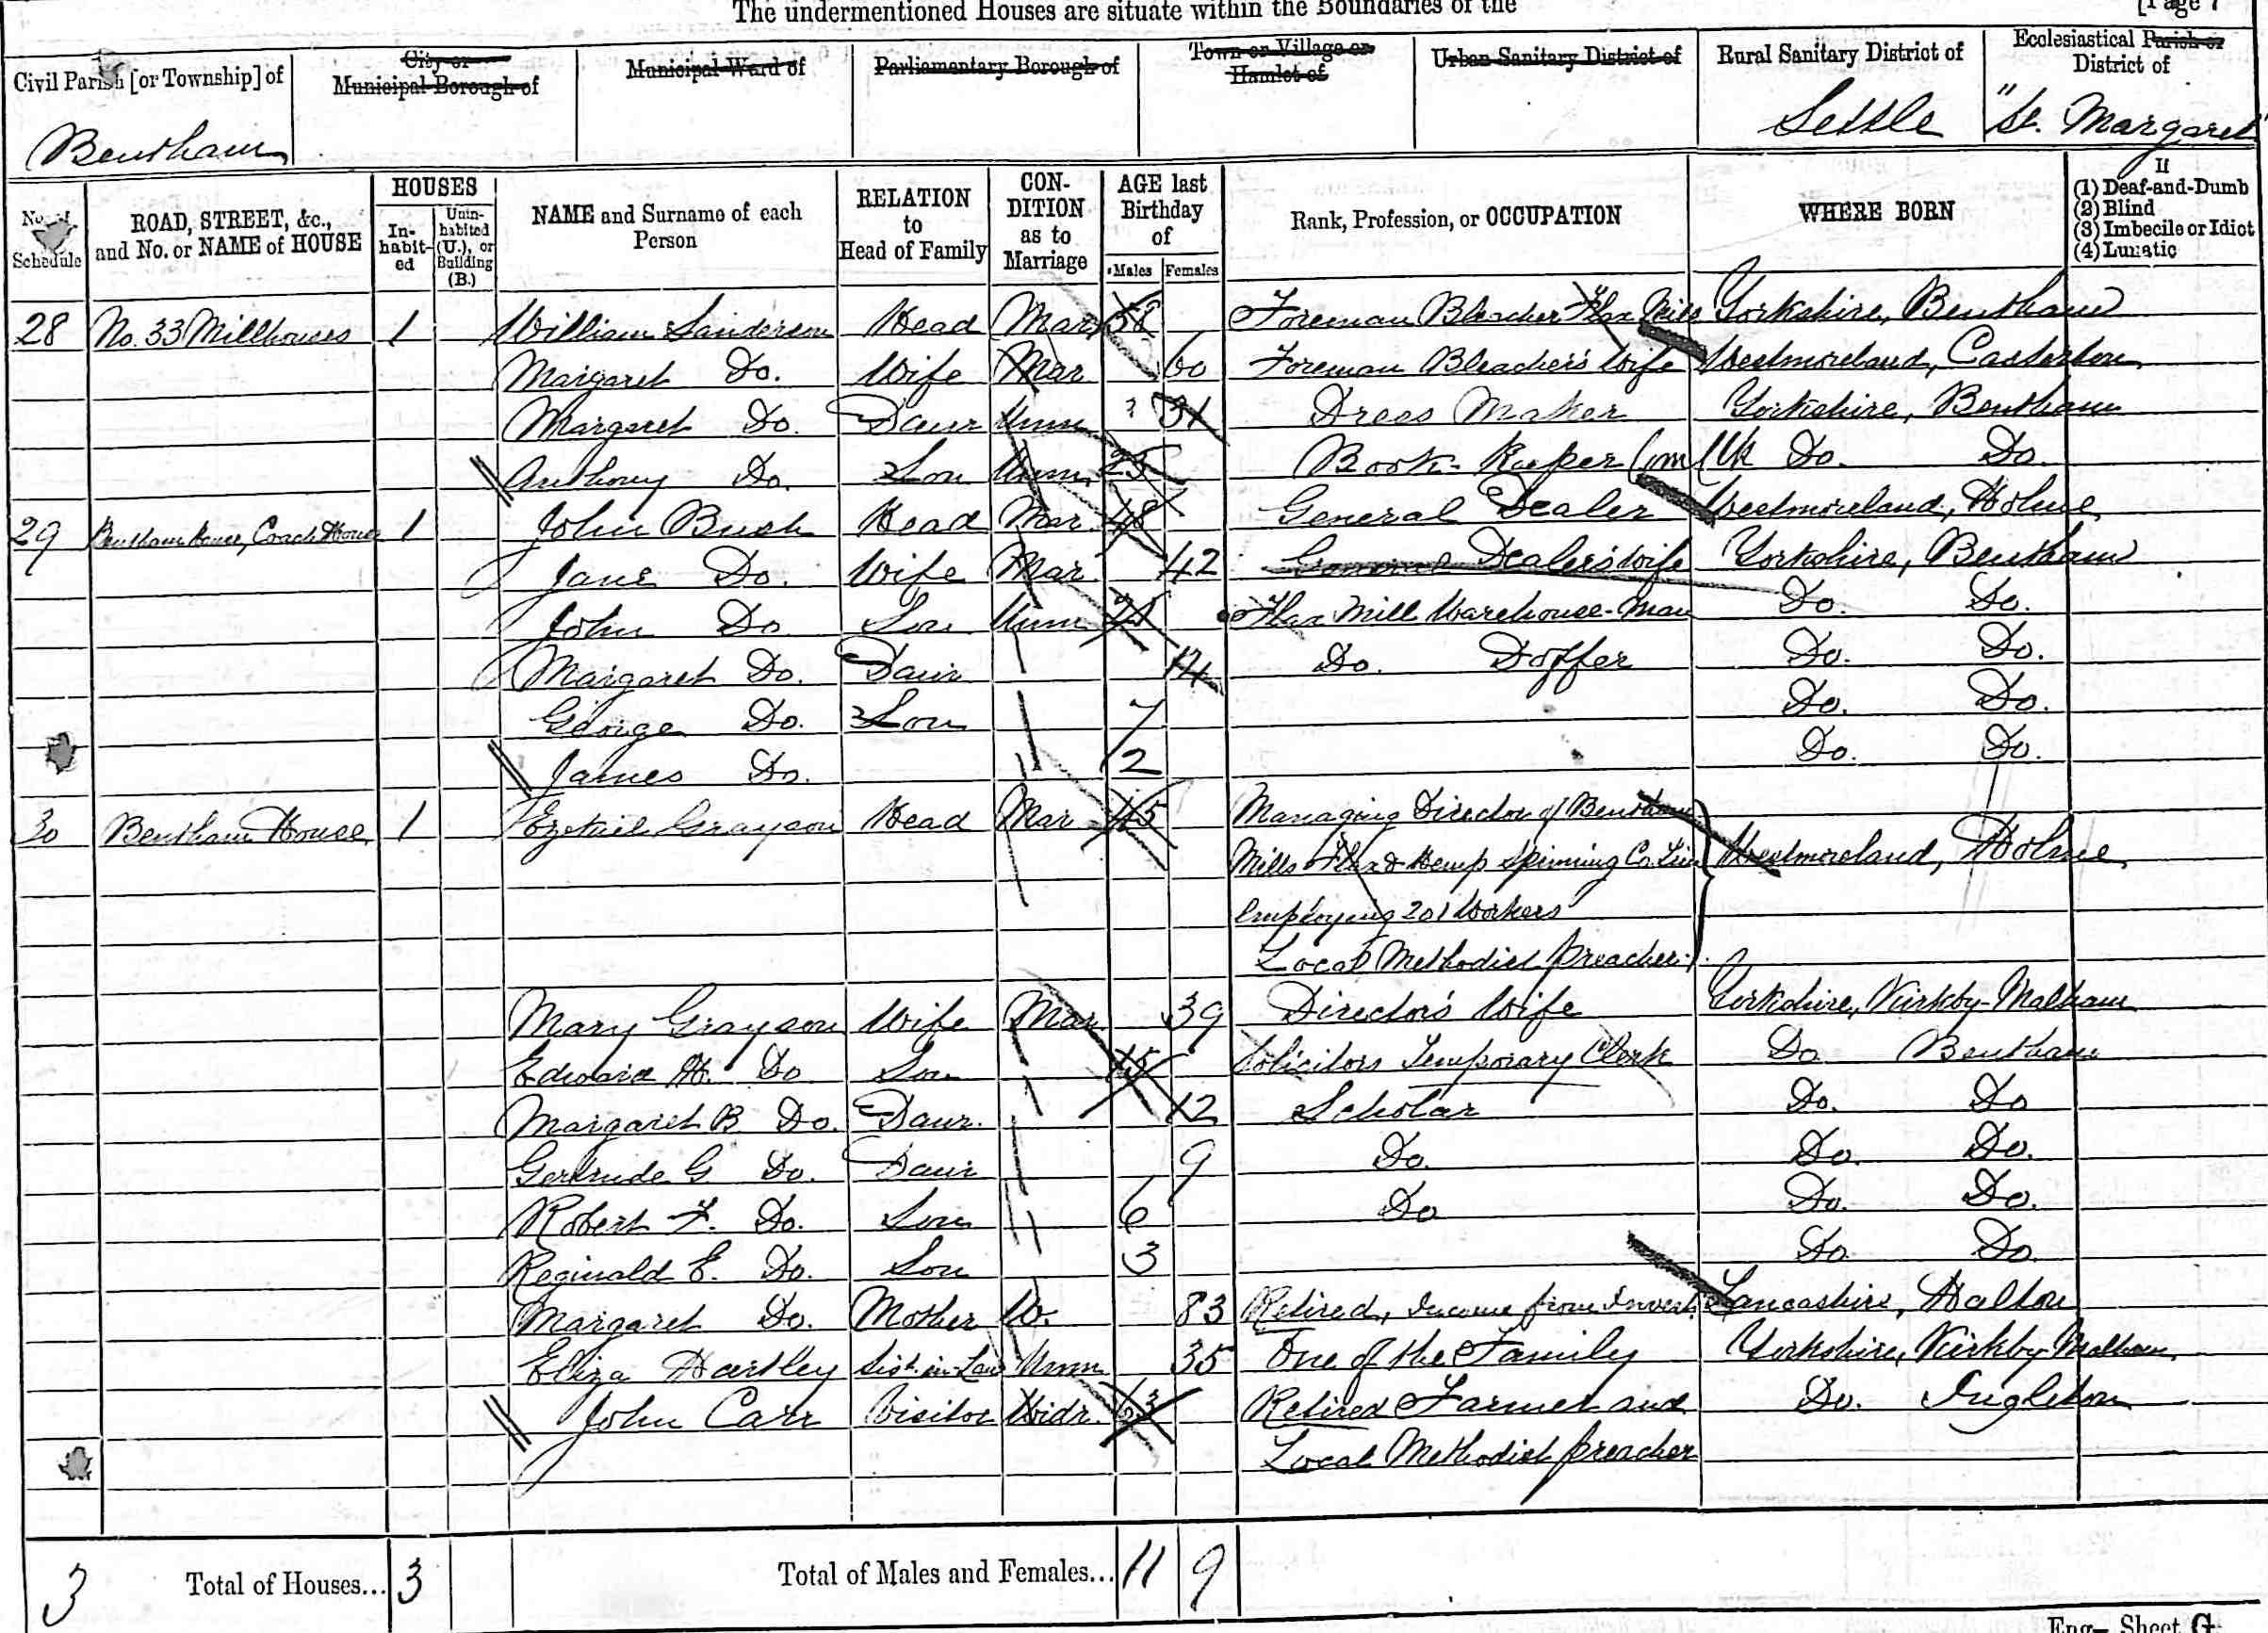 The undermentioned Houses are situate within the Boundaries of the [Page 7
Civil Parish [or Township] of | City or Municipal Borough of | Municipal Ward of | Parliamentary Borough of | Town or Village or Hamlet of | Urban Sanitary District of | Rural Sanitary District of | Ecclesiastical Parish or District of
Bentham | Settle | "St. Margaret"
No. of Schedule | ROAD, STREET, &c., and No. or NAME of HOUSE | HOUSES In-habit-ed | Unin-habited (U.), or Building (B.) | NAME and Surname of each Person | RELATION to Head of Family | CON-DITION as to Marriage | AGE last Birthday of Males | Females | Rank, Profession, or OCCUPATION | WHERE BORN | If (1) Deaf-and-Dumb (2) Blind (3) Imbecile or Idiot (4) Lunatic
28 No. 33 Millhouses 1 William Sanderson Head Mar 58 Foreman Bleacher Flax Yorkshire, Bentham
Margaret Do. Wife Mar 60 Foreman Bleacher's Wife Westmoreland, Casterton
Margaret Do. Daur Unm 31 Dress Maker Yorkshire, Bentham
Anthony Do. Son Unm 25 Book-Keeper Do. Do.
29 Bentham House, Coach House 1 John Bush Head Mar. 48 General Dealer Westmoreland, Holme
Jane Do. Wife Mar. 42 General Dealer's Wife Yorkshire, Bentham
John Do Son Unm Flax Mill Warehouse-Man Do. Do.
Margaret Do. Daur 14 Do. Doffer Do. Do.
George Do. Son 7 Do. Do.
James Do. 2 Do. Do.
30 Bentham House 1 Ezekiel Grayson Head Mar 45 Managing Director of Bentham
Mills Flax & Hemp Spinning Co. Lim Westmoreland, Holme
employing 201 Workers
Local Methodist Preacher.
Mary Grayson Wife Mar 39 Director's Wife Yorkshire, Kirkby-Malham
Edward H. Do Son 15 Solicitors Temporary Clerk Do Bentham
Margaret B Do. Daur. 12 Scholar Do. Do
Gertrude G Do. Daur 9 Do. Do. Do.
Robert F. Do. Son 6 Do Do. Do.
Reginald E. Do. Son 3 Do Do.
Margaret Do. Mother W. 83 Retired, Income from Invest. Lancashire, Halton
Eliza Hartley Sist-in-Law Unm 35 One of the Family Yorkshire, Kirkby Malham
John Carr Visitor Widr. 63 Retired Farmer and Do. Ingleton
Local Methodist Preacher
3 Total of Houses... 3 Total of Males and Females... 11 9
Eng— Sheet G